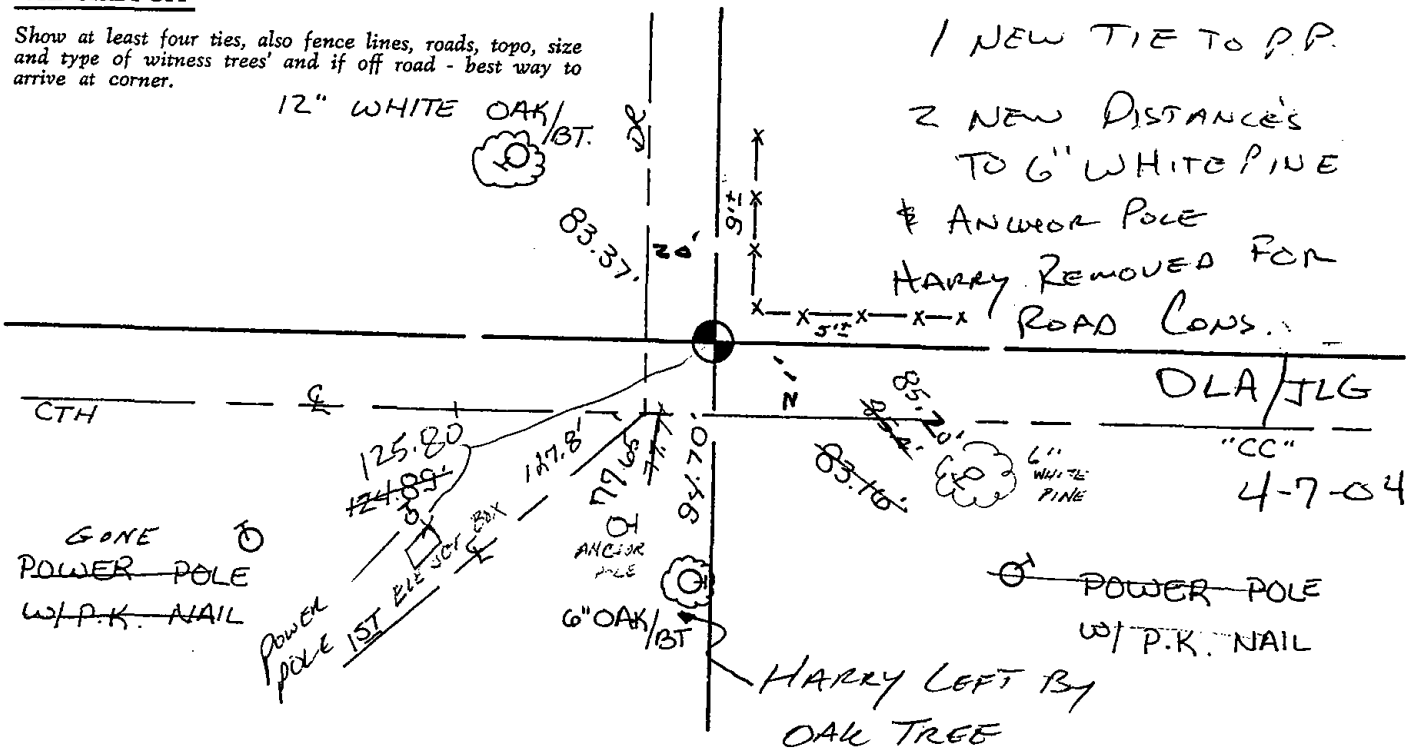 Show at least four ties, also fence lines, roads, topo, size
and type of witness trees' and if off road - best way to
arrive at corner.
1 NEW TIE TO P.P.
2 NEW DISTANCE'S
TO 6" WHITE PINE
& ANCHOR POLE
HARRY REMOVED FOR
ROAD CONS.
12" WHITE OAK/BT.
DR
83.37'
20'
9'±
5'±
N
DLA/JLG
"CC"
4-7-04
CTH
℄
125.80'
124.89'
127.8'
77.65
77.7
94.70'
85.20'
83.16'
6"
WHITE
PINE
GONE
POWER POLE
W/ P.K. NAIL
POWER
POLE
1ST
ELE JCT BOX
℄
ANCHOR
POLE
6" OAK/BT
POWER POLE
W/ P.K. NAIL
HARRY LEFT BY
OAK TREE